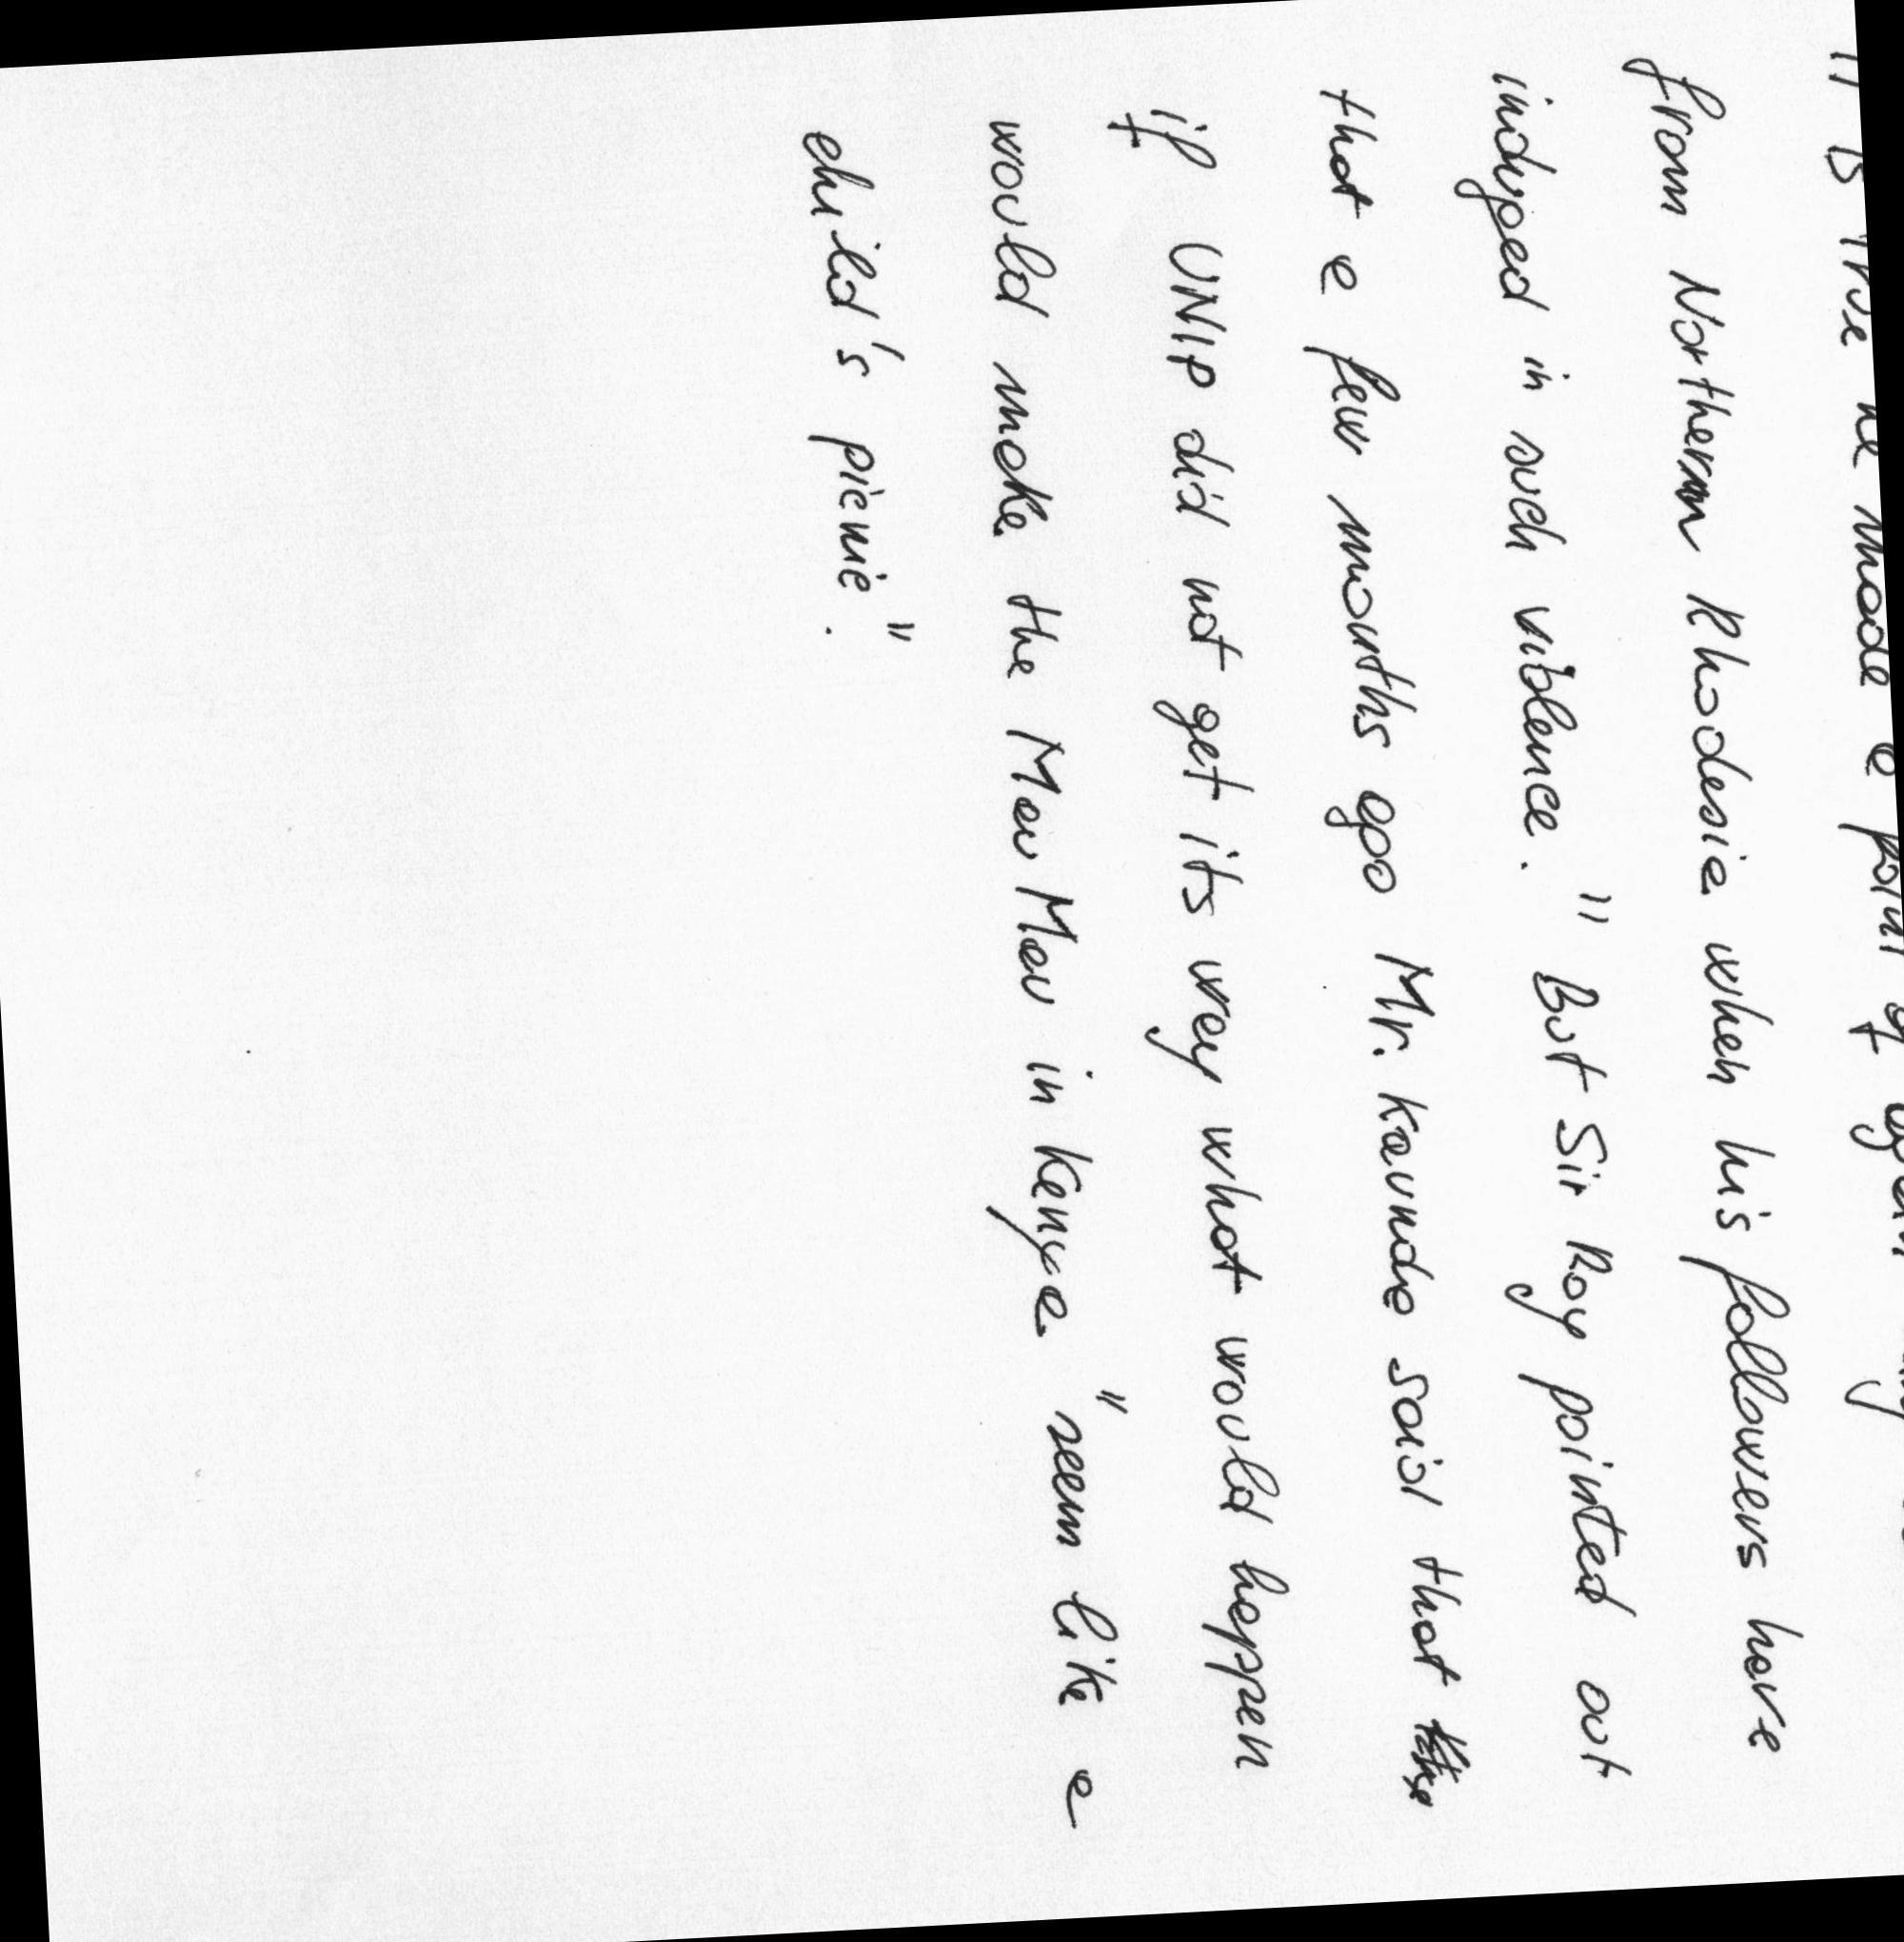 It is true he made a point of
from Northern Rhodesia when his followers have
indulged in such violence." But Sir Roy pointed out
that a few months ago Mr. Kaunda said that
if UNIP did not get its way what would happen
would make the Mau Mau in Kenya "seem like a
child's picnic."